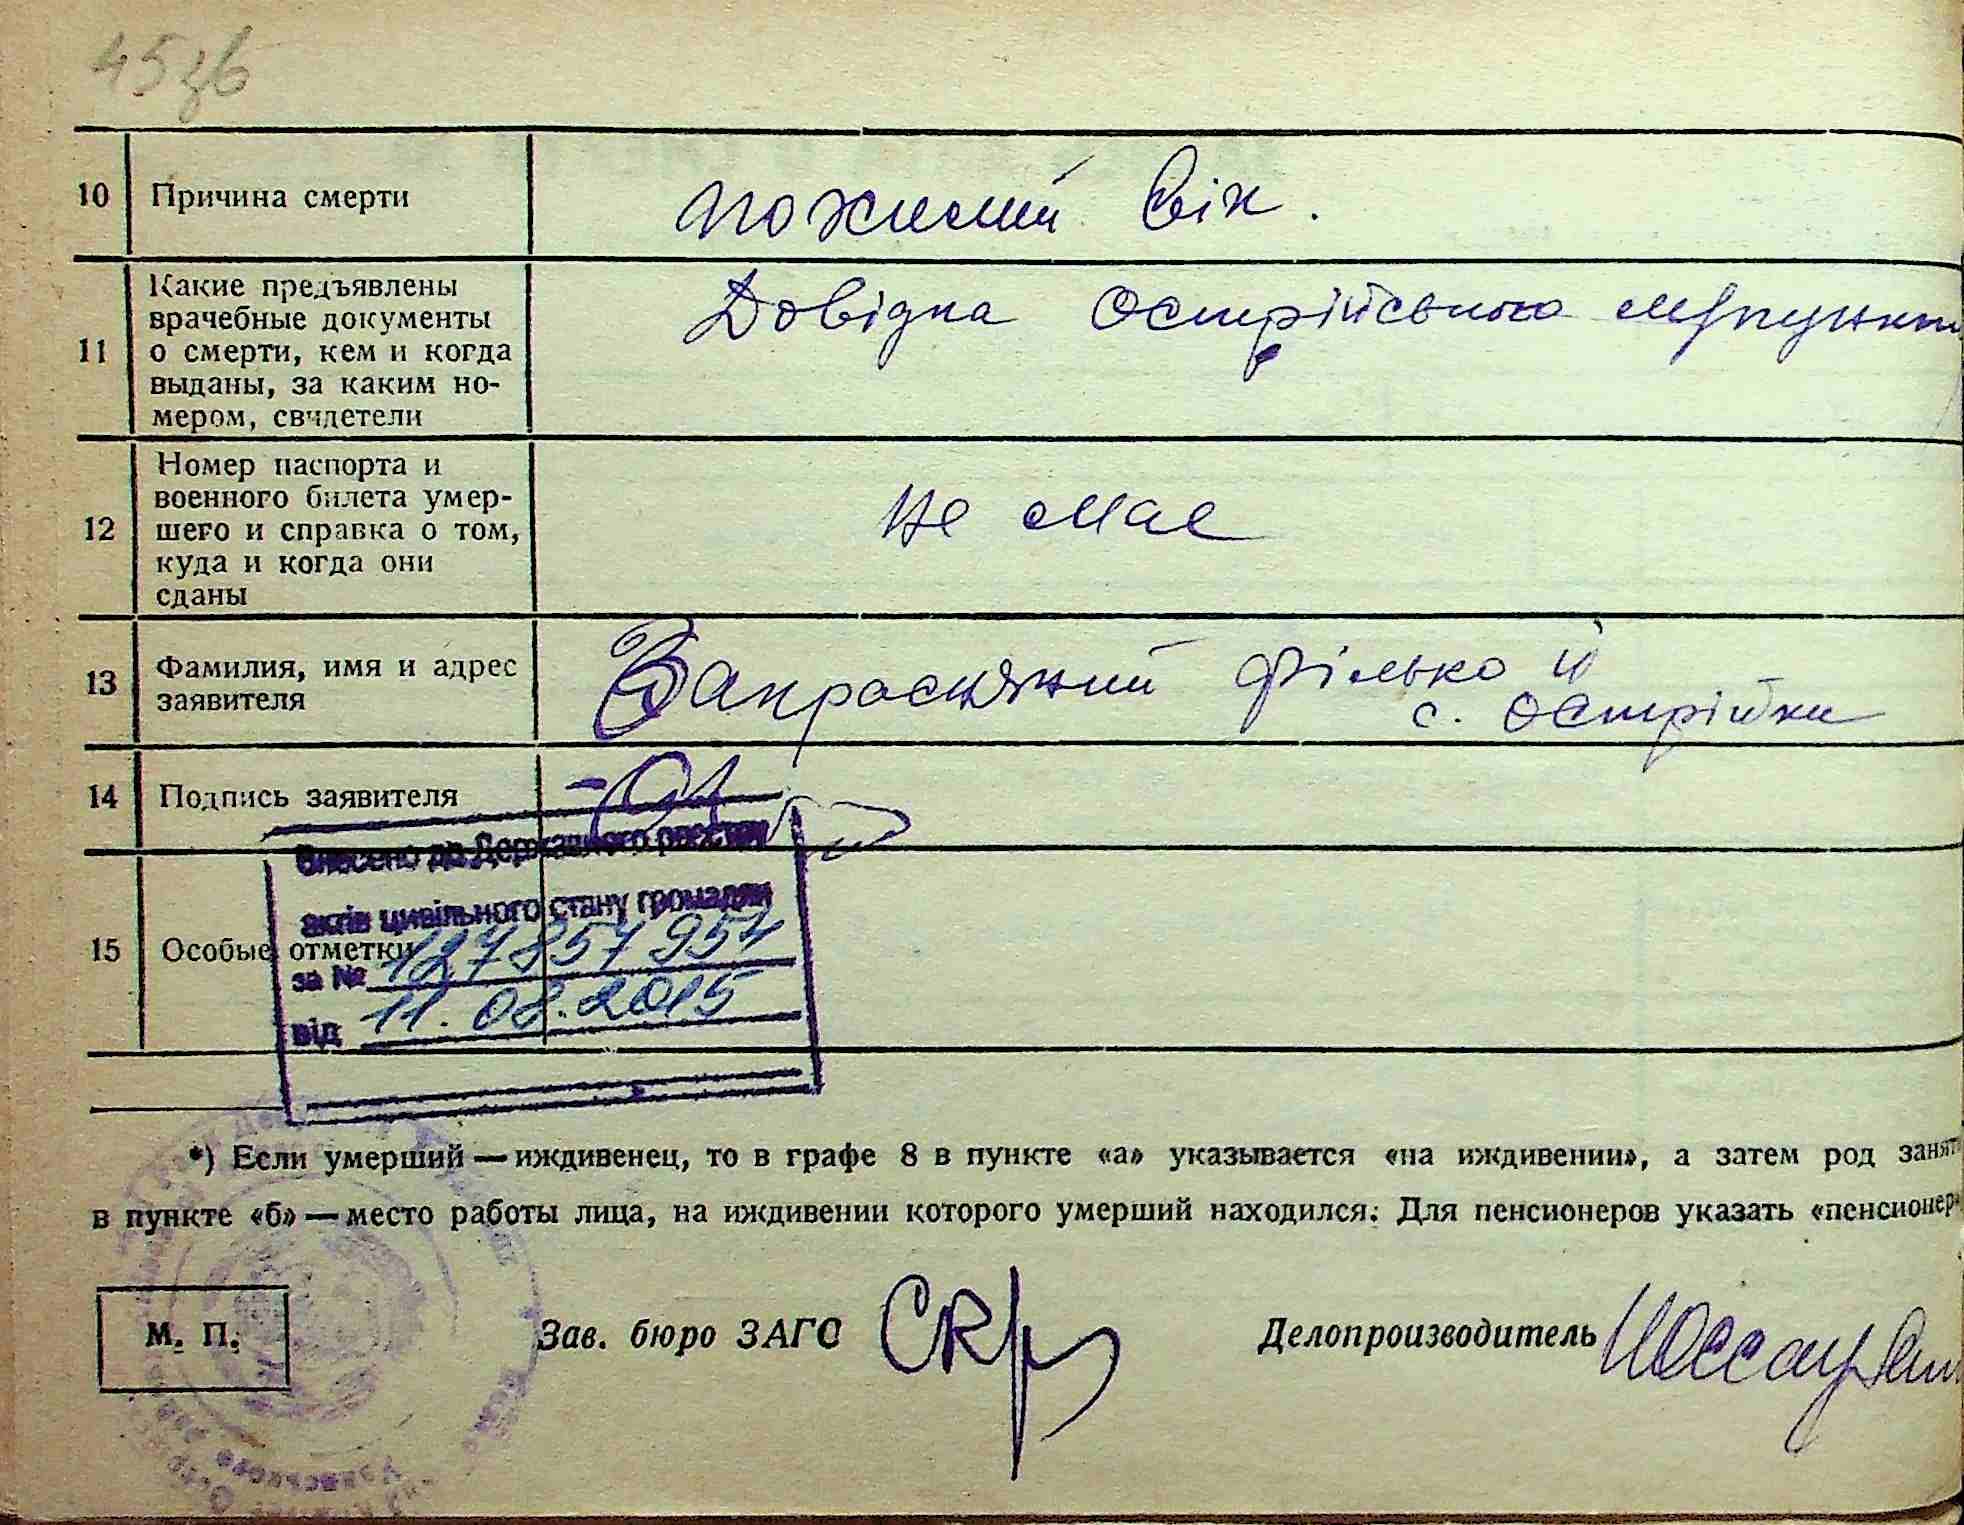 45зв
10 Причина смерти похилий вік.
11 Какие предъявлены
врачебные документы
о смерти, кем и когда
выданы, за каким но-
мером, свидетели
Довідка Острійського медпункту
12 Номер паспорта и
военного билета умер-
шего и справка о том,
куда и когда они
сданы
не має
13 Фамилия, имя и адрес
заявителя
Запросяжний Філько й
с. Острійки
14 Подпись заявителя
Внесено до Державного реєстру
актів цивільного стану громадян
15 Особые отметки
за № 127857954
від 11.08.2015
*) Если умерший — иждивенец, то в графе 8 в пункте «а» указывается «на иждивении», а затем род занят
в пункте «б» — место работы лица, на иждивении которого умерший находился. Для пенсионеров указать «пенсионер»
М. П. Зав. бюро ЗАГС Делопроизводитель